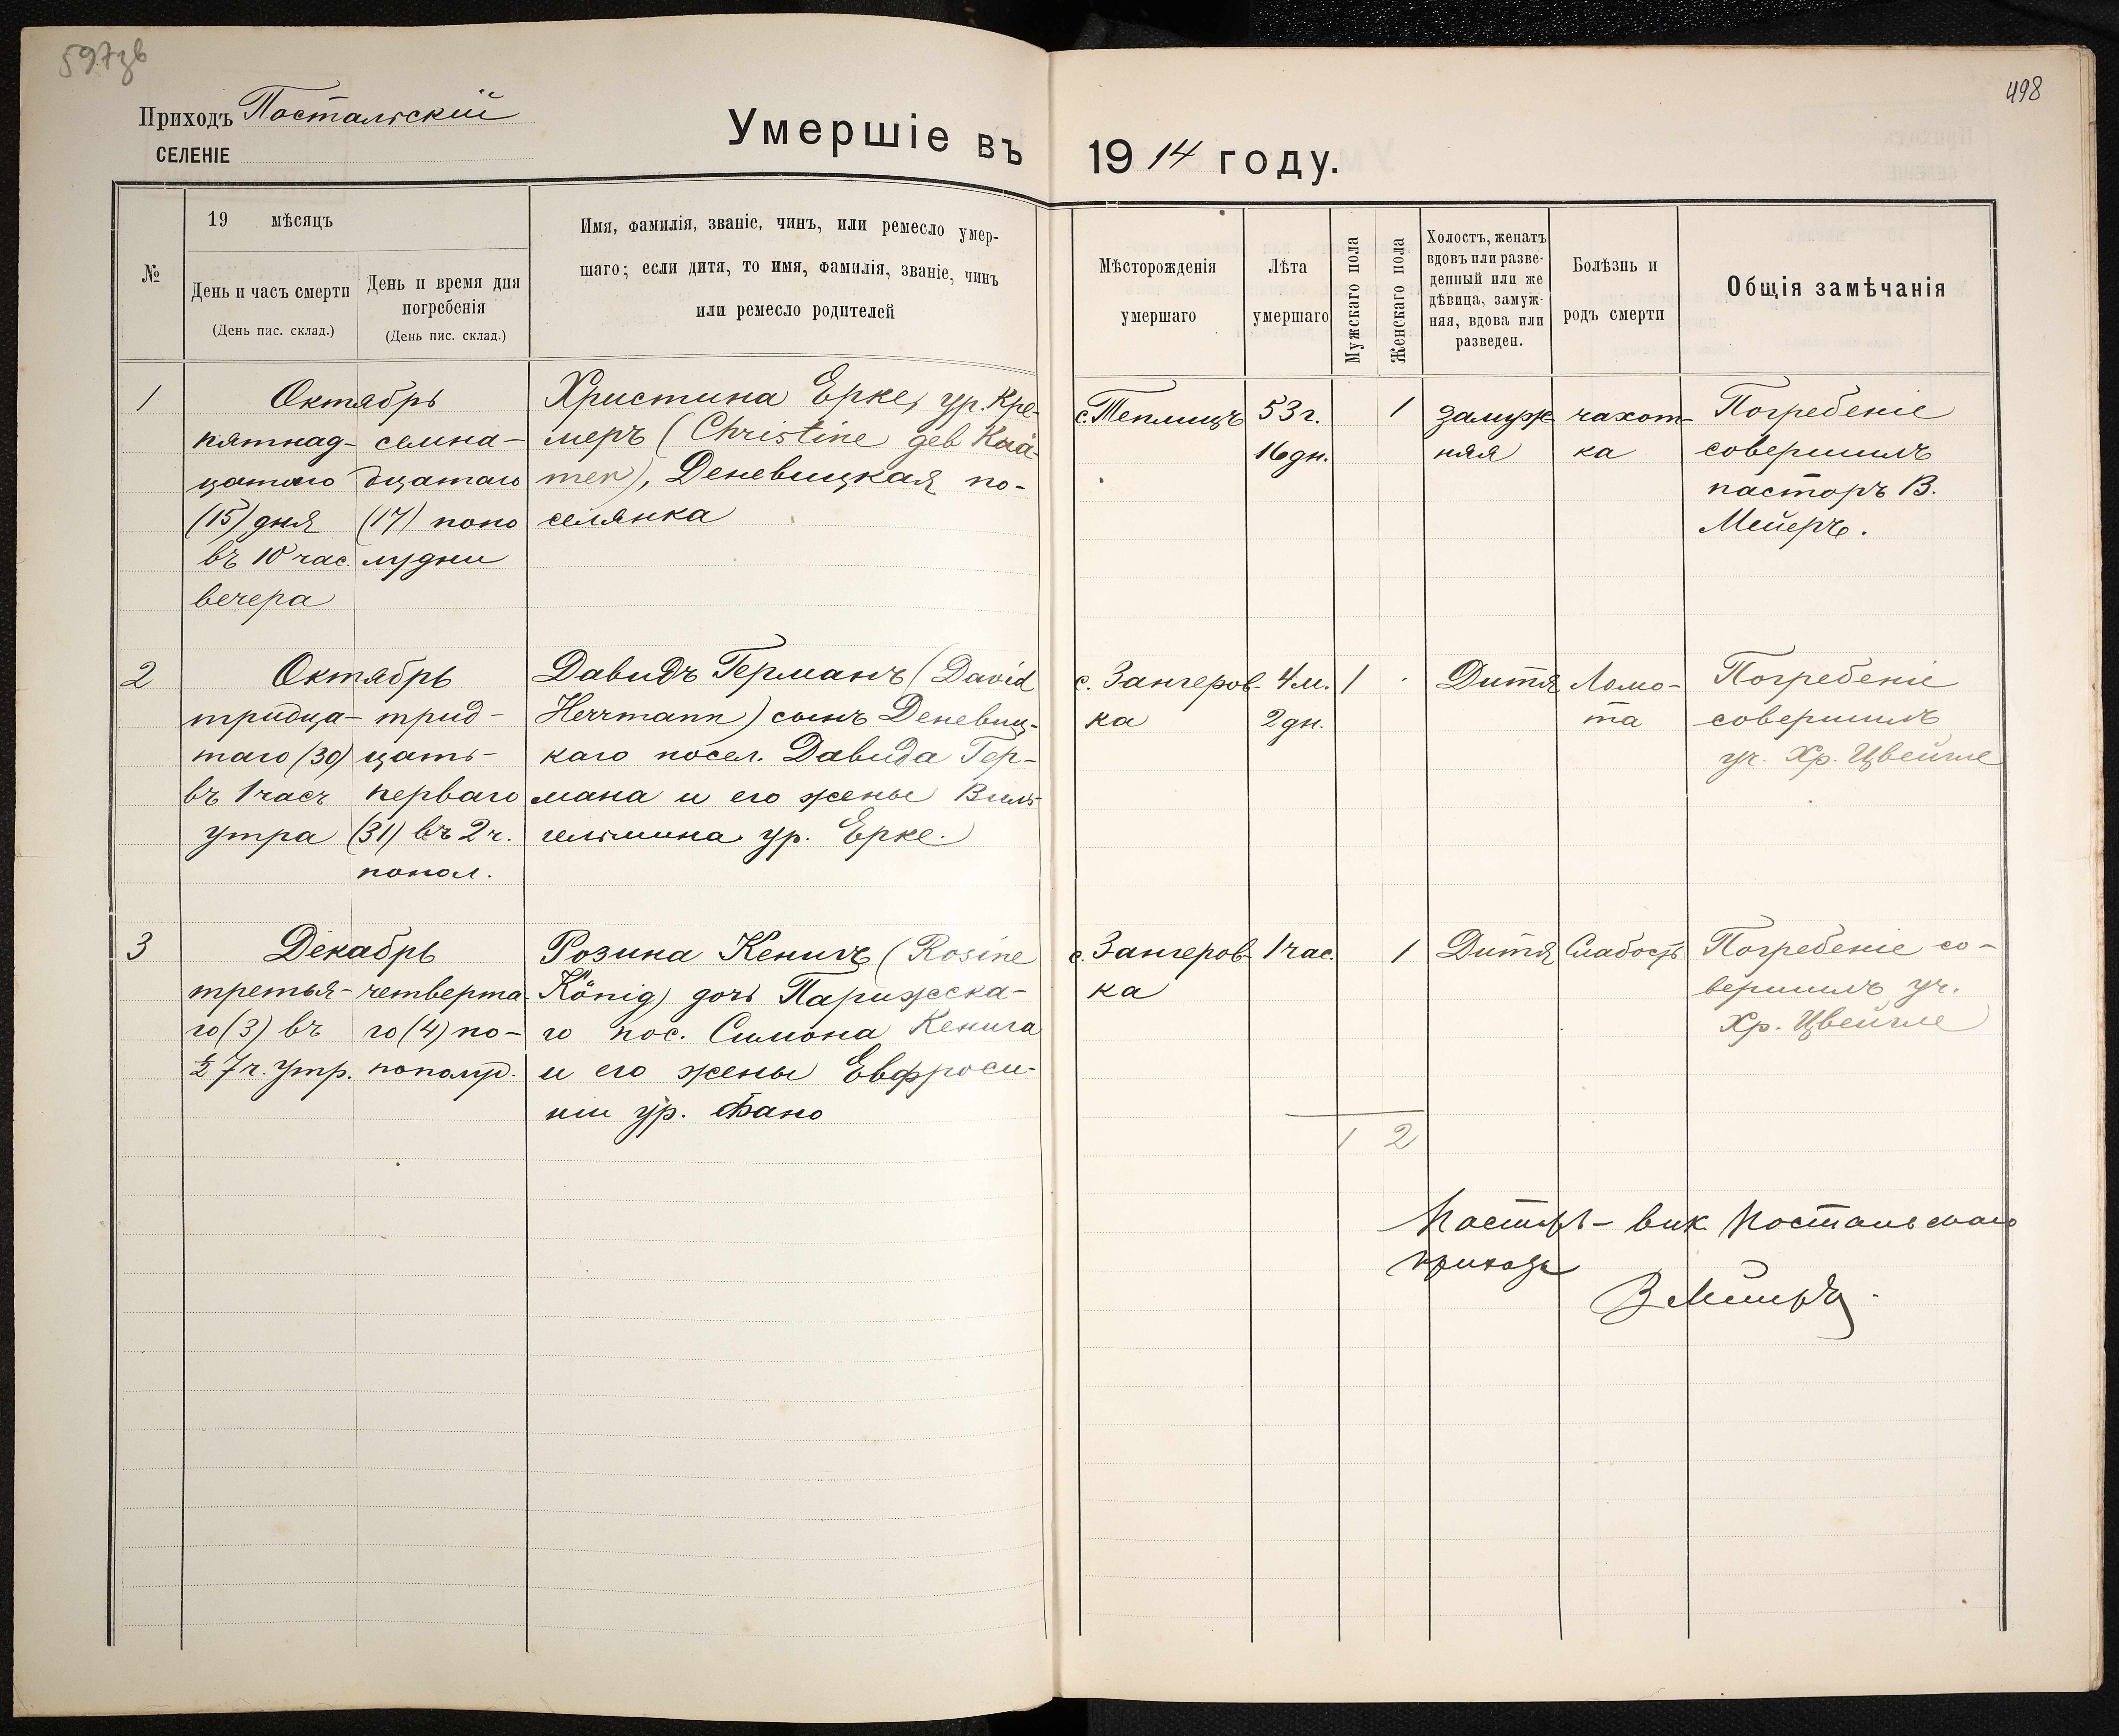 597зв
498
Приходъ Постальскій
СЕЛЕНІЕ
Умершіе въ 1914 году.
№
19 мѣсяцъ
День и часъ смерти
(День пис. склад.)
День и время дня
погребенія
(День пис. склад.)
Имя, фамилія, званіе, чинъ, или ремесло умер-
шаго; если дитя, то имя, фамилія, званіе, чинъ
или ремесло родителей
Мѣсторожденія
умершаго
Лѣта
умершаго
Мужскаго пола
Женскаго пола
Холостъ, женатъ
вдовъ или разве-
денный или же
дѣвица, замуж-
няя, вдова или
разведен.
Болѣзнь и
родъ смерти
Общія замѣчанія
1
Октябрь
пятнад-
цатого
(15) дня
въ 10 час.
вечера
семна-
дцатаго
(17) попо
лудни
Христина Ерке, ур. Кре-
меръ (Christine дев Krä-
mer), Деневицкая по-
селянка
с. Теплицъ
53 г.
16 дн.
1
замуж
няя
чахот-
ка
Погребеніе
совершилъ
пасторъ В.
Мейеръ.
2
Октябрь
тридца-
таго (30)
въ 1 часъ
утра
трид-
цать-
перваго
(31) въ 2 ч.
попол.
Давидъ Германъ (David
Herrmann) сынъ Деневиц-
каго посел. Давида Гер-
мана и его жены Виль-
гельмина ур. Ерке.
с. Зангеров-
ка
4 м.
2 дн.
1
Дитя
Ломо-
та
Погребеніе
совершилъ
уч. Хр. Цвейгле
3
Декабрь
третья-
го (3) въ
½ 7 ч. утр.
четверта-
го (4) по-
Розина Кенигъ (Rosine
König) дочь Парижска-
го пос. Симона Кенига
и его жены Евфроси-
ніи ур. Фано
с. Зангеров-
ка
1 час.
1
Дитя
Слабость
Погребеніе со-
вершилъ уч.
Хр. Цвейгле
1 2
Пасторъ- вик Постальскаго
прихода
В Мейеръ.